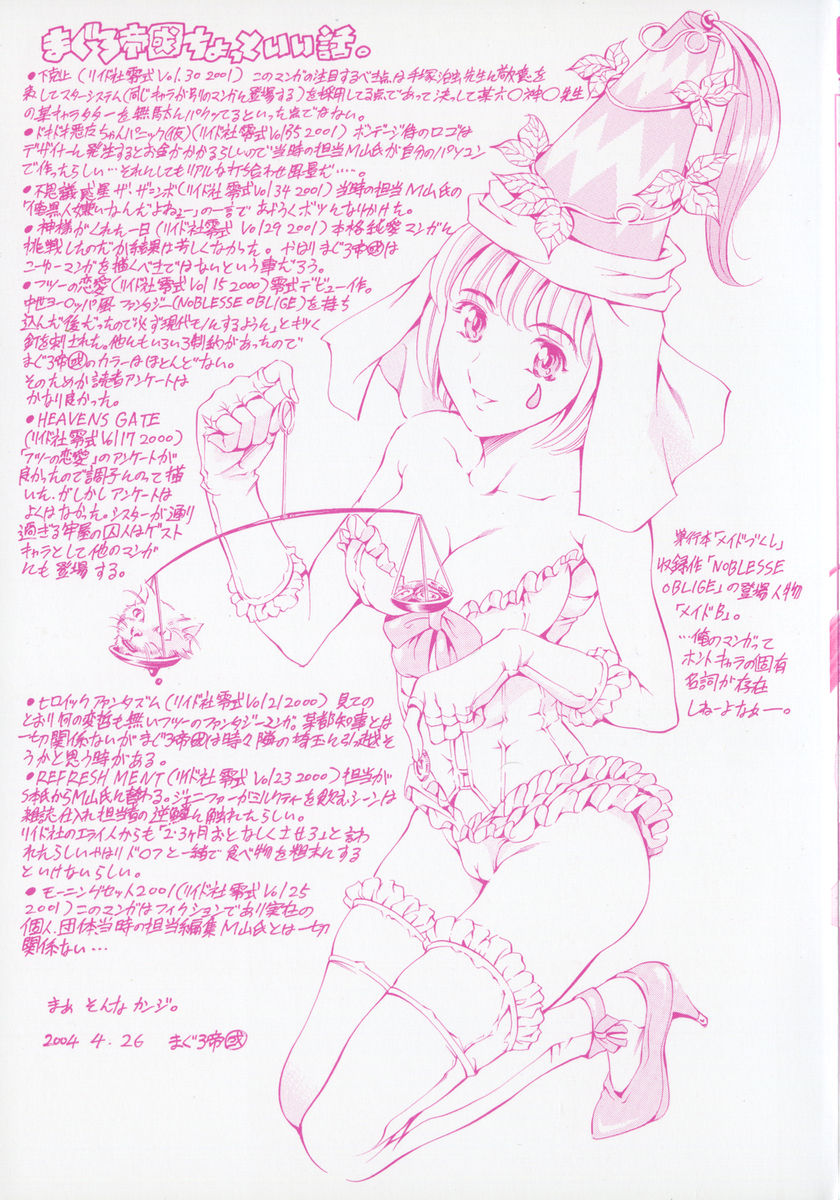 まぐろ帝國ちょっといい話。
●下剋上(リイド社零式Vol.30 2001)このマンガの注目するべき点は手塚治虫先生に敬意を
表してスターシステム(同じキャラが別のマンガに登場する)を採用してる点であって決して某六〇神〇先生
の某キャラクターを無断でパクってるといった点ではない。
(仮)(リイド社零式Vol35 2001)ボンデージ侍のロゴは
デザイナーに発注するとお金がかかるらしいので当時の担当M山氏が自分のパソコン
で作ったらしい…それにしてもリアルな打ち合わせ風景だ…。
●不思議惑星ザ・ザンボ(リイド社零式Vol34 2001)当時の担当M山氏の
「俺異人嫌いなんだよねェー」の一言であやうくボツになりかけた。
●神様がくれた一日(リイド社零式Vol29 2001)本格純愛マンガに
挑戦したのだが結果は芳しくなかった。やはりまぐろ帝國は
ニーリーマンガを描くべきではないという事だろう。
●フツーの恋愛(リイド社零式Vol15 2000)零式デビュー作。
中世ヨーロッパ風ファンタジー(NOBLESSE OBLIGE)を持ち
込んだ後だったので「必ず現代モノにするように」とぶっとく
釘を刺された。他にもいろいろ制約があったので
まぐろ帝國のカラーはほとんどない。
そのためか読者アンケートは
かなり良かった。
●HEAVENS GATE
(リイド社零式Vol17 2000)
「フツーの恋愛」のアンケートが
良かったので調子にのって描
いた。がしかしアンケートは
よくはなかった。シスターが通り
過ぎる牢屋の囚人はゲスト
キャラとして他のマンガ
にも登場する。
単行本「メイドづくし」
収録作「NOBLESSE
OBLIGE」の登場人物
「メイドB」。
…俺のマンガって
ホントキャラの固有
名詞が存在
しねーよなー。
●ヒロイックファンタズム(リイド社零式Vol21 2000)見ての
とおり何の変哲も無いフツーのファンタジーマンガ。某都知事とは
一切関係ないがまぐろ帝國は時々隣の埼玉に引っ越そ
うかと思う時がある。
●REFRESH MENT(リイド社零式Vol.23 2000)担当が
S本氏からM山氏に替わる。ジェニファーがミルクティーを飲むシーンは
雑誌仕入れ担当者の逆鱗に触れたらしい。
リイド社のエライ人からも「2・3ヶ月おとなしくさせろ」と言わ
れたらしいやはりドロフと一緒で食べ物を粗末にする
といけないらしい。
●モーニングセット2001(リイド社零式Vol25
2001)このマンガはフィクションであり実在の
個人、団体当時の担当編集M山氏とは一切
関係ない…
まぁ そんな カンジ。
2004 4.26 まぐろ帝國